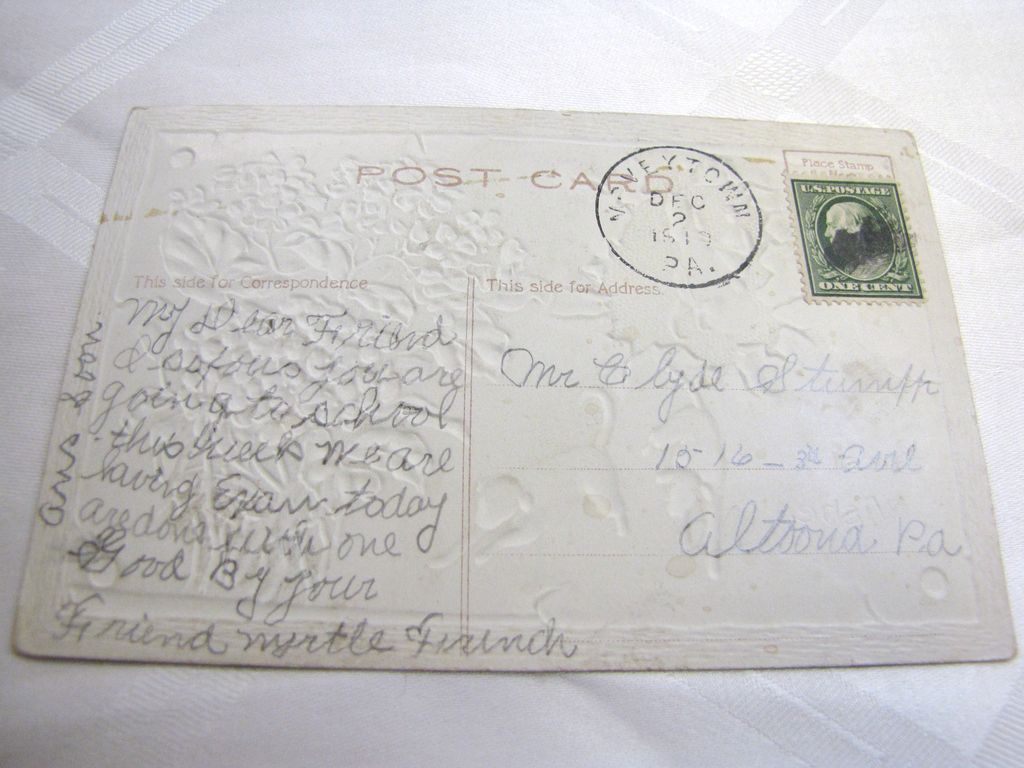 POST CARD
Place Stamp
Here
U.S. POSTAGE
ONE CENT
VEYTOWN
DEC
2
PA.
This side for Correspondence
This side for Address.
My Dear Friend
I you are
going to school
this week we are
having Exam today
are done with one
Good By your
Friend Myrtle
Mr Clyde Stumpf
1516 - 3rd ave
Altoona Pa